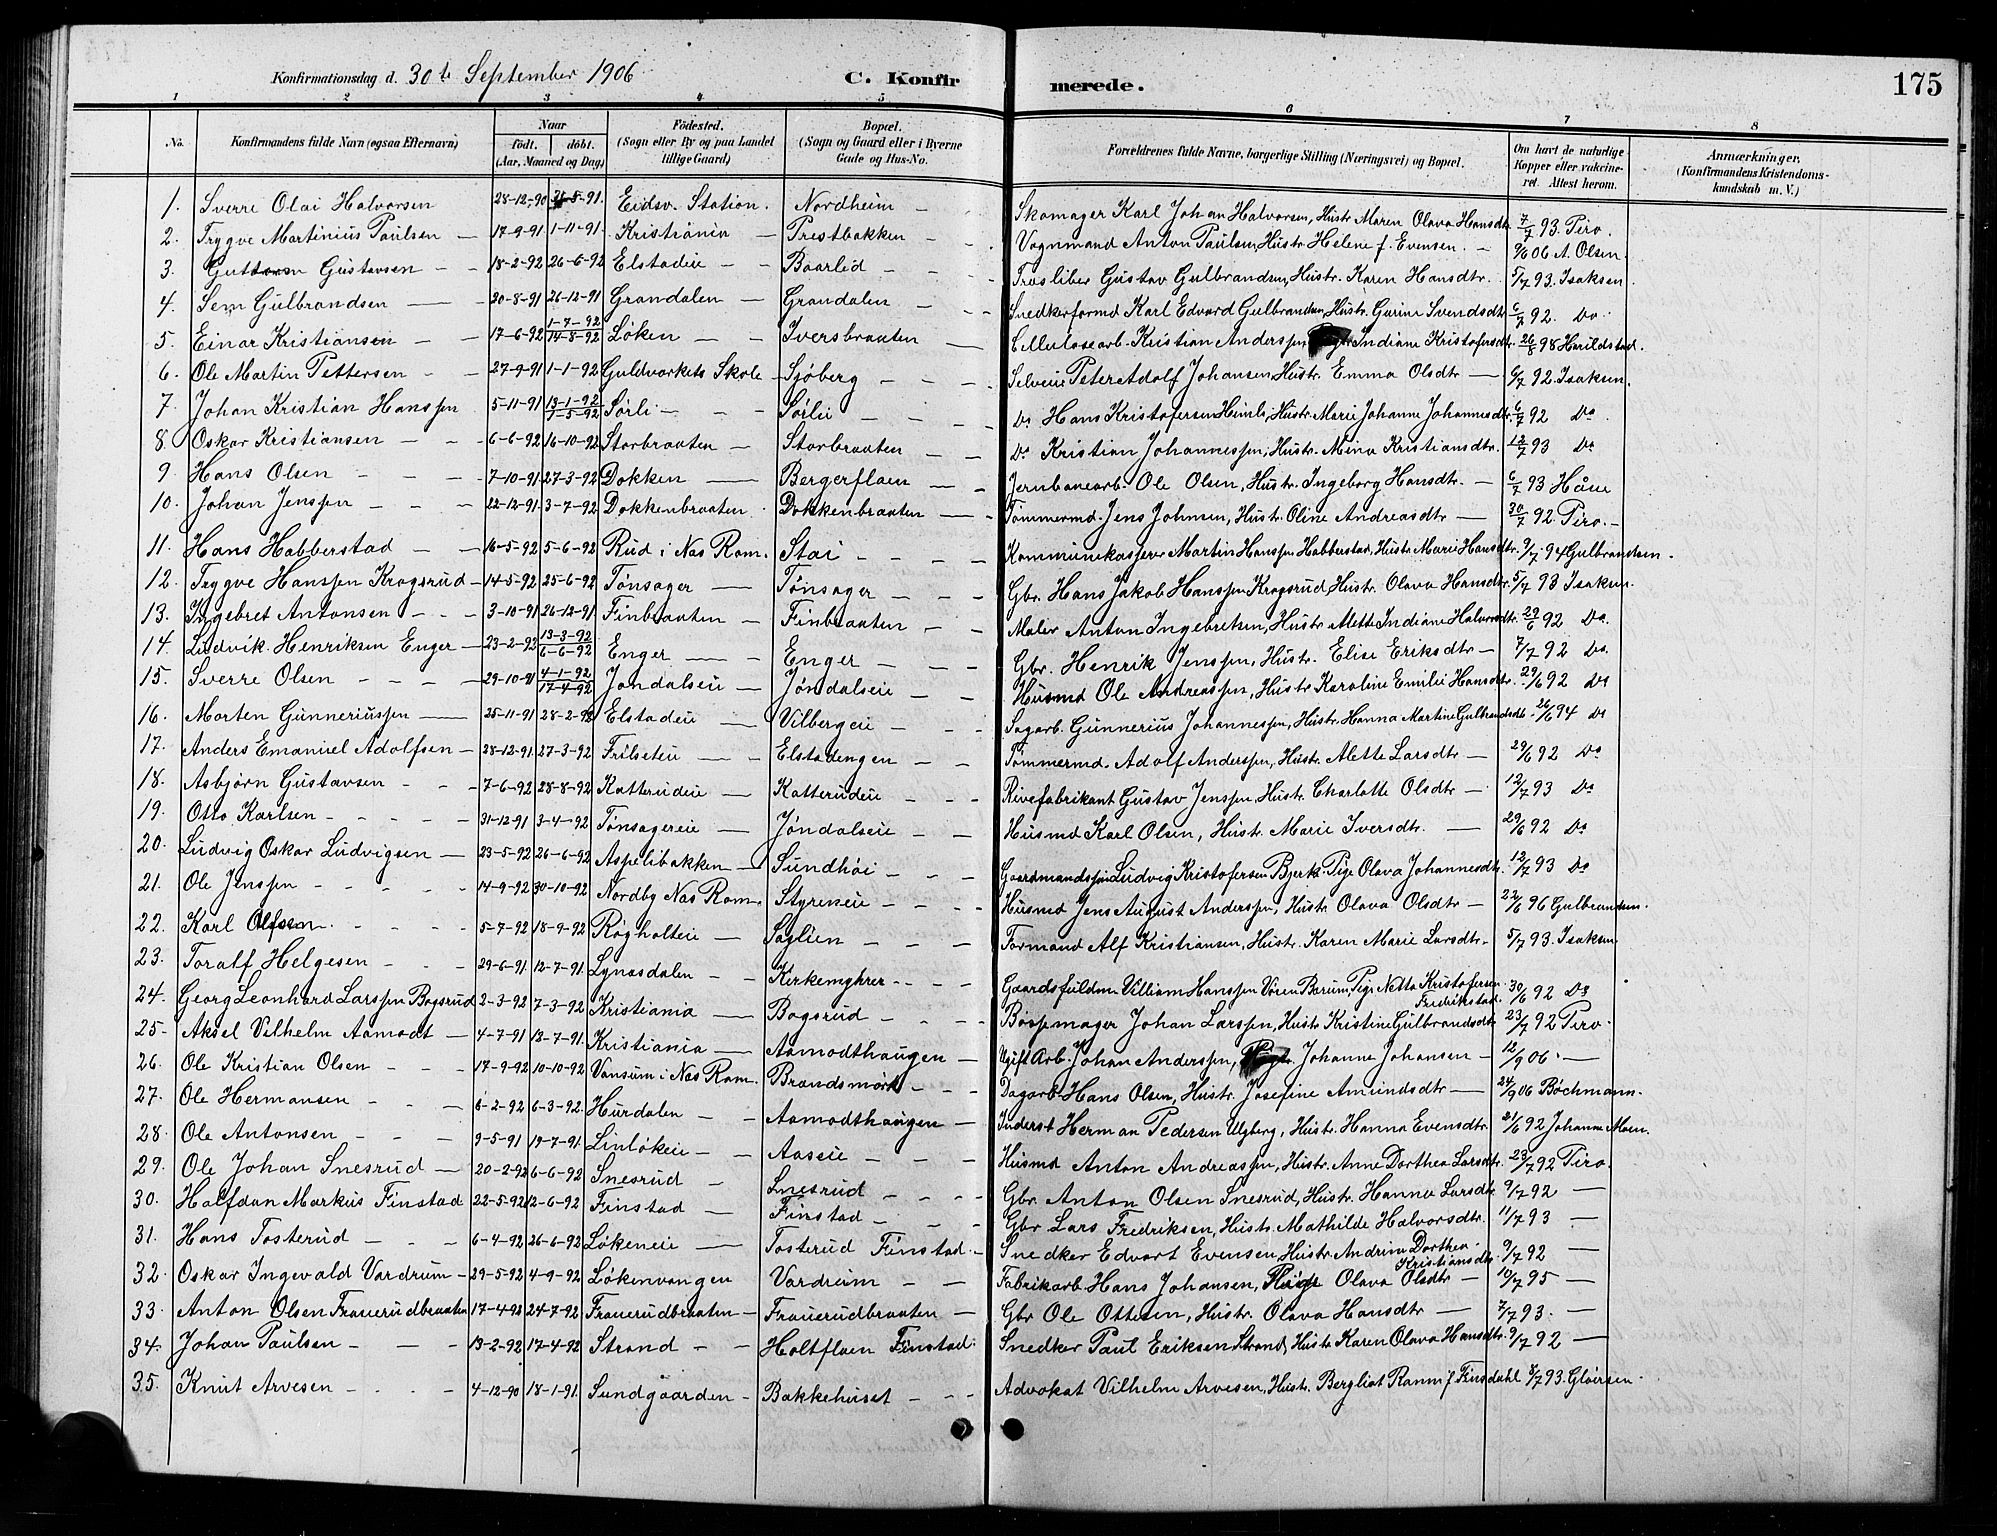 Konfirmationsdag d. 30te September 1906 C. Konfirmerede. 175
1 2 3 4 5 6 7 8
No. Konfirmandens fulde Navn (ogsaa Efternavn) Naar født. døbt. (Aar, Maaned og Dag) Fødested. (Sogn eller By og paa Landet tillige Gaard) Bopæl. (Sogn og Gaard eller i Byerne Gade og Hus-No. Forældrenes fulde Navne, borgerlige Stilling (Næringsvei) og Bopæl. Om havt de naturlige Kopper eller vaccineret. Attest herom. Anmærkninger. (Konfirmandens Kristendomskundskab m. V.)
1. Sverre Olai Halvorsen 28-12-90 31-5-91. Eidsv. Station. Nordheim Skomager Karl Johan Halvorsen, Hustr. Maren Olava Hansdtr 7/7 93. Piro.
2. Trygve Martinius Paulsen 17-9-91 1-11-91. Kristiania Prestbakken Vognmand Anton Paulsen, Hustr. Helene f. Evensen. 9/6 06 A. Olsen.
3. Guttorm Gustavsen 18-2-92 26-6-92 Elstadeie Baarlid Træsliber Gustav Gulbrandsen, Hustr. Karen Hansdtr. 5/7 93. Isaksen.
4. Sem Gulbrandsen 20-8-91 26-12-91 Grandalen Grandalen Snedkerformd Karl Edvard Gulbrandsen, Hustr. Gurine Svendsdtr 6/7 92. Do.
5. Einar Kristiansen 17-6-92 1-7-92 14-8-92 Løken Iversbraaten Cellulosearb. Kristian Anderssen Indiane Kristofersdtr. 26/8 98 Harildstad.
6. Ole Martin Pettersen 27-9-91 1-1-92 Guldværkets Skole Sjøberg Selveier Peter Adolf Johansen, Hustr. Emma Olsdtr 6/7 92. Isaksen.
7. Johan Kristian Hanssen 5-11-91 13-1-92 7-5-92 Sørli Sørlie Do Hans Kristofersen Heimli, Hustr. Marie Johanne Johannesdtr. 6/7 92 Do
8. Oskar Kristiansen 6-6-92 16-10-92 Storbraaten Storbraaten Do Kristian Johannessen, Hustr. Mina Kristiansdtr. 12/7 93 Do
9. Hans Olsen 7-10-91 27-3-92 Dokken Bergerfloen Jernbanearb. Ole Olsen, Hustr. Ingeborg Hansdtr. 6/7 93 Håue
10. Johan Jenssen 22-12-91 3-7-92 Dokkenbraaten Dokkenbraaten Tømmermd. Jens Johnsen, Hustr. Oline Andreasdtr 30/7 92. Piro.
11. Hans Habberstad 16-5-92 5-6-92 Rud i Næs Rom. Stai Kommunekasserer Martin Hanssen Habberstad, Hustr Marie Hansdtr. 9/7. 94 Gulbrandsen.
12. Trygve Hanssen Krogsrud 14-5-92 25-6-92 Tønsager Tønsager Gbr. Hans Jakob Hanssen Krogsrud, Hustr. Olava Hansdtr. 5/7 93 Isaksen.
13. Ingebret Antonsen 3-10-91 26-12-91 Finbraaten Finbraaten Maler Anton Ingebretsen, Hustr Mette Indiane Halvorsdtr. 29/6 92 Do.
14. Ludvik Henriksen Enger 23-2-92 13-3-92 6-6-92 Enger Enger Gbr. Henrik Jenssen, Hustr. Elise Eriksdtr 7/7 92 Do.
15. Sverre Olsen 29-10-91 4-1-92 17-4-92 Jøndalseie Jøndalseie Husmd Ole Andreassen, Hustr Karoline Emilie Hansdtr. 29/6 92 Do
16. Morten Gunneriussen 25-11-91 28-2-92 Elstadeie Vilbergeie Sagarb. Gunnerius Johannessen, Hustr. Hanna Martine Gulbrandsdtr. 26/6 94 Do
17. Anders Emanuel Adolfsen 28-12-91. 27-3-92 Frilseteie Elstadengen Tømmermd. Adolf Anderssen, Hustr. Alette Larsdtr 29/6 92 Do
18. Asbjørn Gustavsen 7-6-92 28-8-92 Katterudeie Katterudeie Rivefabrikant Gustav Jenssen, Hustr. Charlotte Olsdtr 12/7 93 Do
19. Otto Karlsen 31-12-91 3-4-92 Tønsagereie Jøndalseie Husmd Karl Olsen, Hustr. Marie Iversdtr. 29/6 92 Do
20. Ludvig Oskar Ludvigsen 23-5-92 26-6-92 Aspelibakken Sundhøi Gaardmandssøn Ludvig Kristofersen Bjerk. Pige Olava Johannesdtr. 12/7 93 Do
21. Ole Jenssen 14-9-92 30-10-92 Nordby Næs Rom. Styrieie Husmd Jens August Anderssen, Hustr. Olava Olsdtr 22/6 96 Gulbrandsen.
22. Karl Alfsen 5-7-92 18-9-92 Rogholteie Saglien Formand Alf Kristiansen, Hustr. Karen Marie Larsdtr 5/7 93. Isaksen
23. Toralf Helgesen 29-6-91. 12-7-91. Lynæsdalen Kirkemyhrer Gaardsfuldm. Villiam Hanssen Vøien Bærum, Pige Netta Kristofersen Fredrikstad. 30/6 92 Do
24. Georg Leonhard Larssen Bogsrud 2-3-92 7-3-92 Kristiania Bogsrud Børsemager Johan Larssen, Hustr Kristine Gulbrandsdtr 23/7 92 Piro.
25. Aksel Vilhelm Aamodt 4-7-91 12-7-91. Kristiania Aamodthaugen Ugift Arb. Johan Anderssen, Pige Johanne Johansen 12/9 06.
26. Ole Kristian Olsen 17-9-92 10-10-92 Vansum i Næs Rom. Brandsmørk Dagarb. Hans Olsen, Hustr. Josefine Amundsdtr 24/9 06 Bøchmann.
27. Ole Hermansen 6-2-92 6-3-92. Hurdalen Aamodthaugen Inderst Herman Pedersen Ulsberg, Hustr. Hanna Evensdtr. 21/6 92 Johanne Moen.
28. Ole Antonsen 9-5-91 19-7-91. Linløkeie Aaseie Husmd Anton Andreassen, Hustr. Anne Dorthea Larsdtr. 23/7 92 Piro.
29. Ole Johan Snesrud 20-2-92 6-6-92 Snesrud Snesrud Gbr. Anton Olsen Snesrud, Hustr. Hanna Larsdtr. 9/7 92
30. Halfdan Markus Finstad 22-5-92 12-6-92 Finstad Finstad Gbr Lars Fredriksen, Hustr. Mathilde Halvorsdtr. 11/7 93
31. Hans Tosterud 6-4-92 26-6-92 Løkeneie Tosterud Finstad. Snedker Edvart Evensen, Hustr. Andrine Dorthea Kristiansdtr. 9/7 92
32. Oskar Ingevald Vardrum 29-5-92 4-9-92 Løkenvangen Vardeim Fabrikarb Hans Johansen, Pige Olava Olsdtr 10/7 95
33. Anton Olsen Frauerudbraaten 17-4-92 24-7-92 Frauerudbraaten Frauerudbraaten Gbr Ole Ottesen, Hustr. Olava Hansdtr 7/7 93.
34. Johan Paulsen 13-2-92 17-4-92 Strand Holtfloen Finstad. Snedker Paul Eriksen Strand, Hustr Karen Olava Hansdtr. 9/7 92
35. Knut Arvesen 4-12-90 18-1-91. Sundgaarden Bakkehuset Advokat Vilhelm Arvesen, Hustr. Bergliot Ranni f Finsdahl 8/7 93. Gløersen.